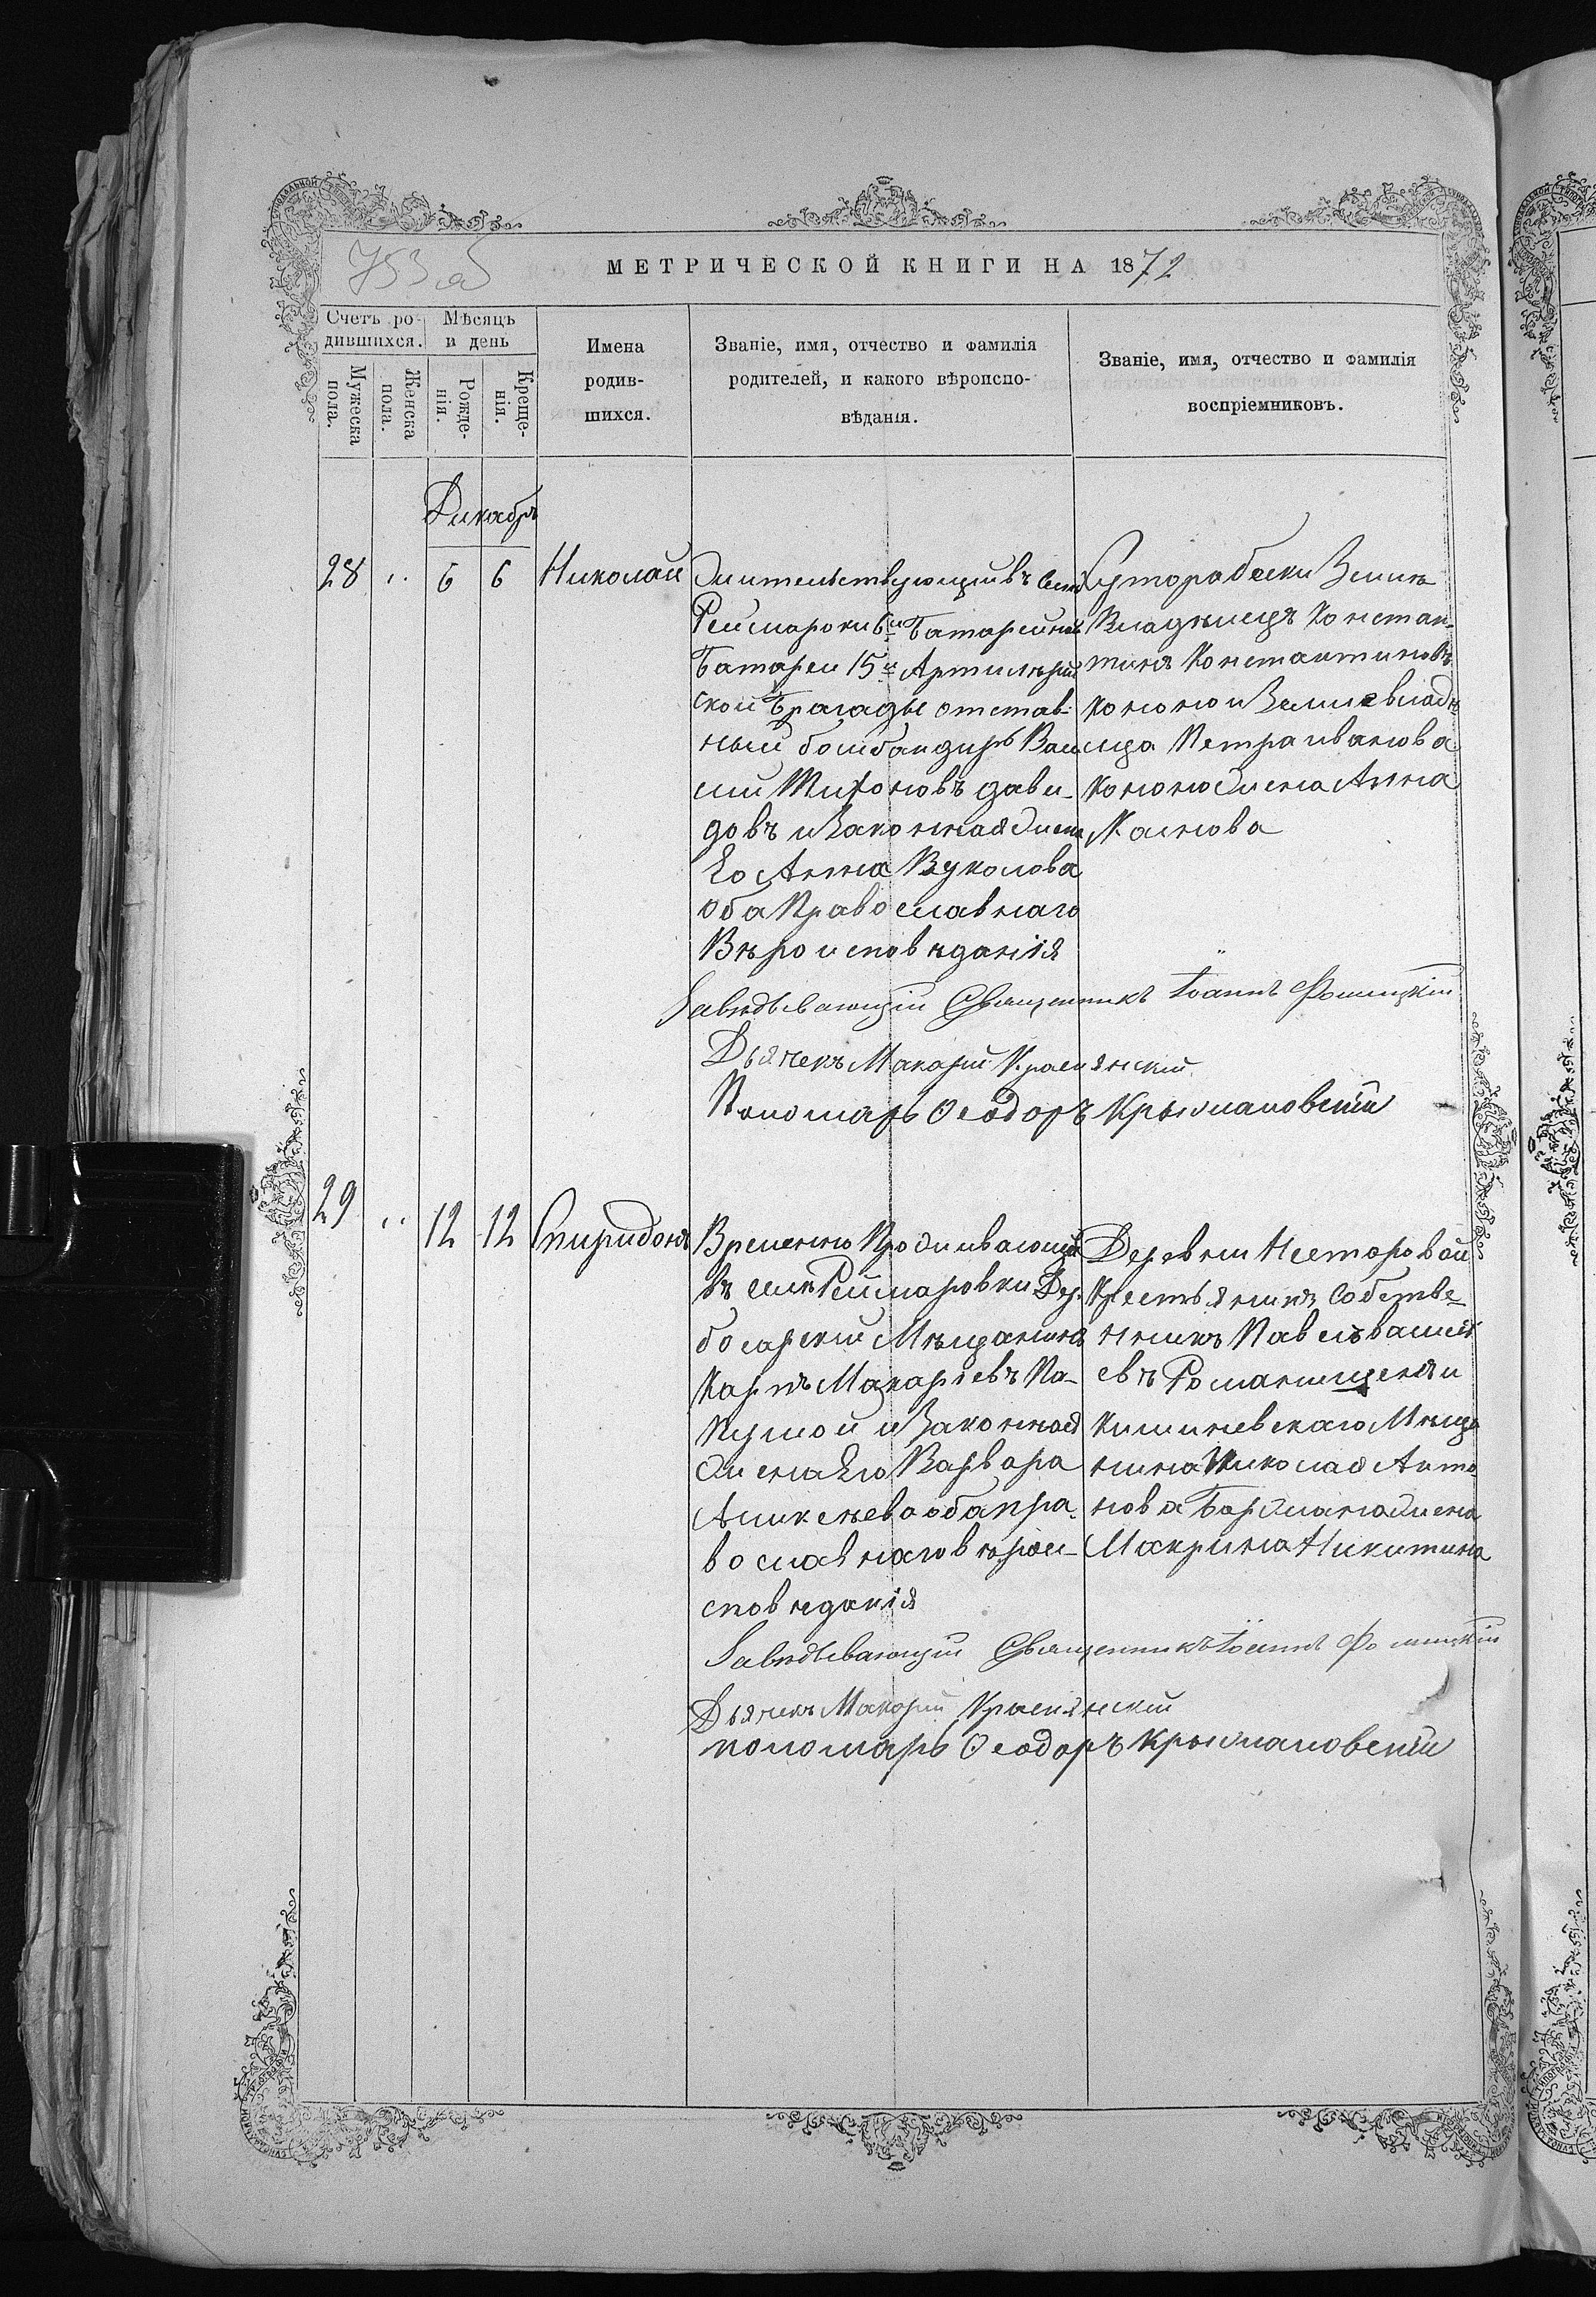 753 об
МЕТРИЧЕСКОЙ КНИГИ НА 1872
Счетъ ро-
дившихся.
Мѣсяцъ
и день
Имена
родив-
шихся.
Званіе, имя, отчество и фамилія
родителей, и какого вѣроиспо-
вѣданія.
Званіе, имя, отчество и фамилія
воспріемниковъ.
Мужеска
пола.
Женска
пола.
Рожде-
нія.
Креще-
нія.
Декабрь
28 " 6 6 Николай
Жительствующій въ селѣ
Реймаровки 6й Батарейной
Батареи 15й Артилерій
ской Брагады отстав-
ный бомбандиръ Васи
лий Тихоновъ Дави-
довъ и Законная жена
Его Анна Вуколова
Оба Православнаго
Вѣроисповѣданія
Хутора Земле
Владѣлецъ Констан-
тинъ Константиновъ
Кононо и Землевладѣ
льца Петра Иванова
Кононо жена Анна
Завѣдывающій Священникъ Іоаннъ
Дьячекъ Макарій Краснянскій
Пономарь Ѳеодоръ Крыжановскій
29 " 12 12 Спиридонъ
Временно Проживающій
въ селѣ Реймаровки Ду-
босарский Мѣщанинъ
Карпъ Макаріевъ Па-
и Законная
жена Его Варвара
Аликсѣева оба пра-
вославнаго вѣрои-
сповѣданія
Деревни Нестаровой
Крестьянинъ Собстве-
нникъ Павелъ Васильі
евъ Романищенъ и
Кишиневскаго Мѣща
нина Николая Анто
нова Баржана жена
Макрина Никитина
Завѣдывающій Священникъ Іоаннъ
Дьячекъ Макарій Краснянскій
пономарь Ѳеодоръ Крыжановскій